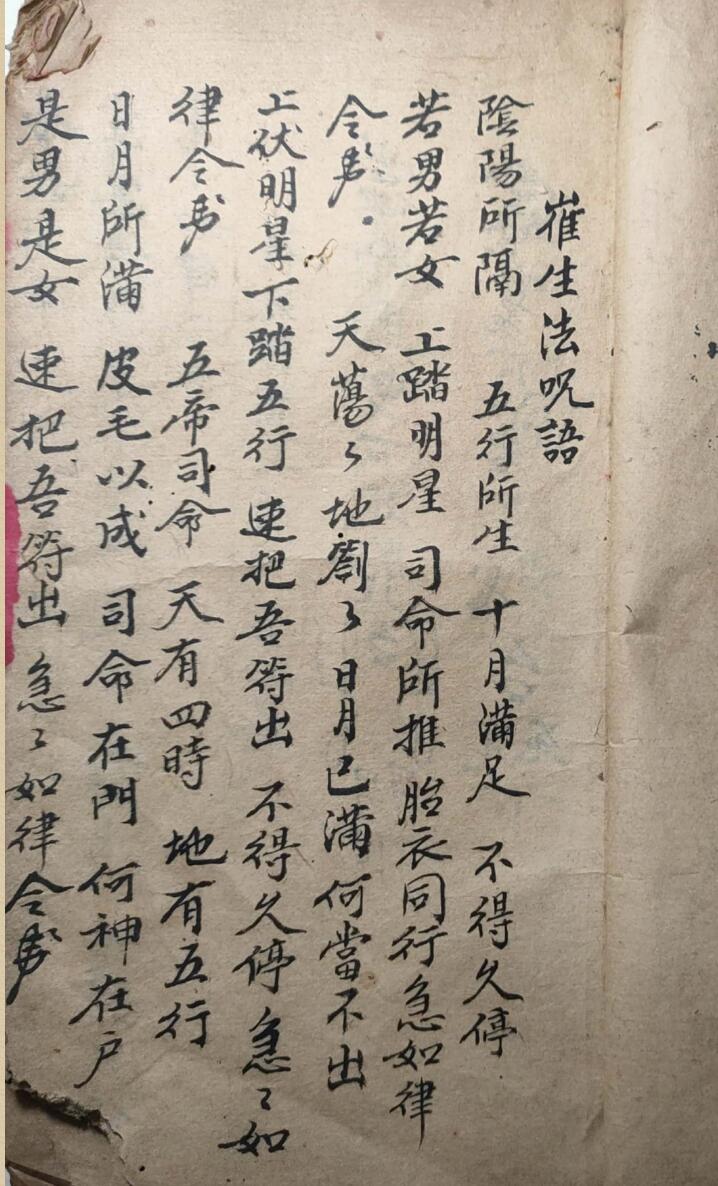 崔生法呪語
陰陽所隔 五行所生 十月滿足 不得久停
若男若女 上踏明星 司命所推 胎衣同行急如律
令 天蕩々地劉々日月已滿何當不出
上伏明星下踏五行 速把吾符出 不得久停 急〻如
律令 五帝司命 天有四時 地有五行
日月所滿 皮毛以成 司命在門 何神在户
是男是女 速把吾符出 急〻如律令